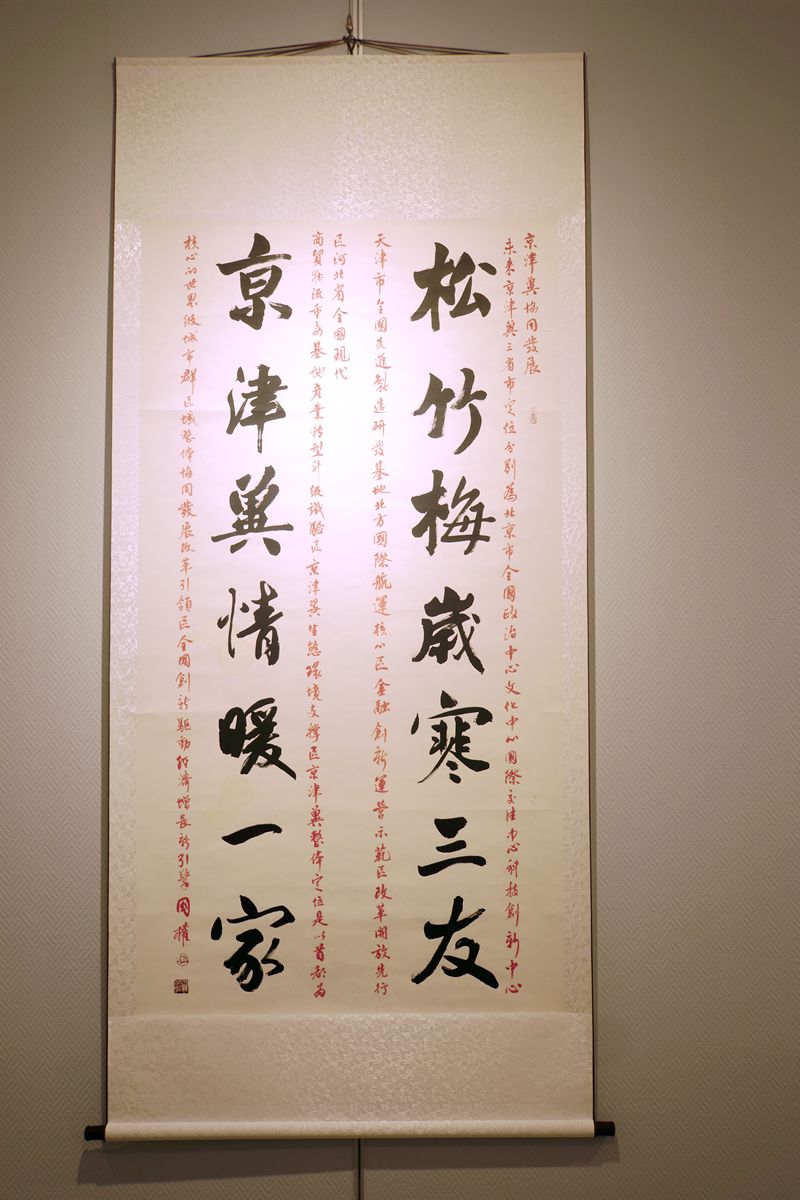 京津冀協同發展
未来京津冀三省市定位分别為北京市全國政治中心文化中心國際交往中心科技創新中心
松竹梅歲寒三友
天津市全國先進製造研發基地北方國際航運核心區金融創新運營示範區改革開放先行
區河北省全國現代
商貿物流重要基地產業轉型升級試驗區京津冀生態環境支撐區京津冀整体定位是以首都為
京津冀情暖一家
核心的世界級城市群區域整体協同發展改革引領區全國創新驅動經濟增長新引擎
國權